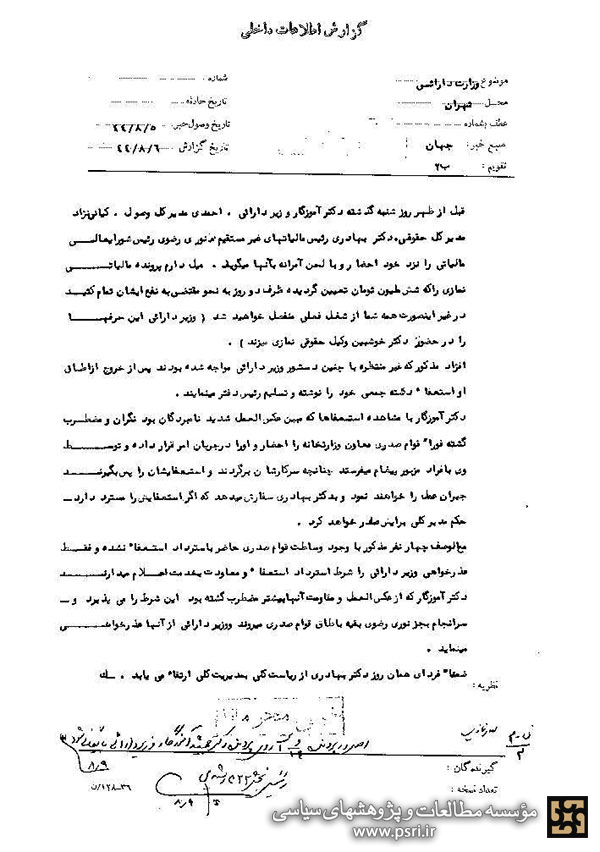 گزارش اطلاعات داخلی
موضوع وزارت دارائی
شماره :
محل تهران
تاریخ حادثه
عطف بشماره
تاریخ وصول خبر ۴۴/۸/۵
منبع خبر : جهان
تاریخ گزارش ۴۴/۸/۶
تقویم : ب۲
قبل از ظهر روز شنبه گذشته دکتر آموزگار وزیر دارائی ، احمدی مدیر کل وصول ، کیانی نژاد
مدیر کل حقوقی، دکتر بهادری رئیس مالیاتهای غیر مستقیم و نوری رضوی رئیس شورایعالی
مالیاتی را نزد خود احضار و با لحن آمرانه بآنها میگوید ، میل دارم پرونده مالیاتی
نمازی را که شش ملیون تومان تعیین گردیده ظرف دو روز به نحو مقتضی به نفع ایشان تمام کنید
در غیر اینصورت همه شما از شغل فعلی منفصل خواهید شد ( وزیر دارائی این حرفها
را در حضور دکتر خوشبین وکیل حقوقی نمازی میزند ) .
افراد مذکور که غیر منتظره با چنین دستور وزیر دارائی مواجه شده بودند پس از خروج از اطاق
او استعفاء دسته جمعی خود را نوشته و تسلیم رئیس دفتر مینمایند .
دکتر آموزگار با مشاهده استعفاها که مبین عکس العمل شدید نامبردگان بود نگران و مضطرب
گشته فوراً قوام صدری معاون وزارتخانه را احضار و او را در جریان امر قرار داده و توسط
وی بافراد مزبور پیغام میفرستد چنانچه سرکارشان برگردند و استعفایشان را پس بگیرند
جبران عمل را خواهند نمود و بدکتر بهادری سفارش میدهد که اگر استعفایش را مسترد دارد
حکم مدیر کلی برایش صادر خواهد کرد .
مع الوصف چهار نفر مذکور با وجود وساطت قوام صدری حاضر باسترداد استعفاء نشده و فقط
عذرخواهی وزیر دارائی را شرط استرداد استعفاء و معاودت بخدمت اعلام میدارند
دکتر آموزگار که از عکس العمل و مقاومت آنها بیشتر مضطرب گشته بود این شرط را می پذیرد و
سرانجام بجز نوری رضوی بقیه باطاق قوام صدری میروند و وزیر دارائی از آنها عذرخواهی
مینماید .
ضمناً فردای همان روز دکتر بهادری از ریاست کلی بمدیریت کلی ارتقاء می یابد . ك
نظریه :
۸/۹
گیرندگان :
تعداد نسخه :
۸/۹
مؤسسه مطالعات و پژوهشهای سیاسی
www.psri.ir